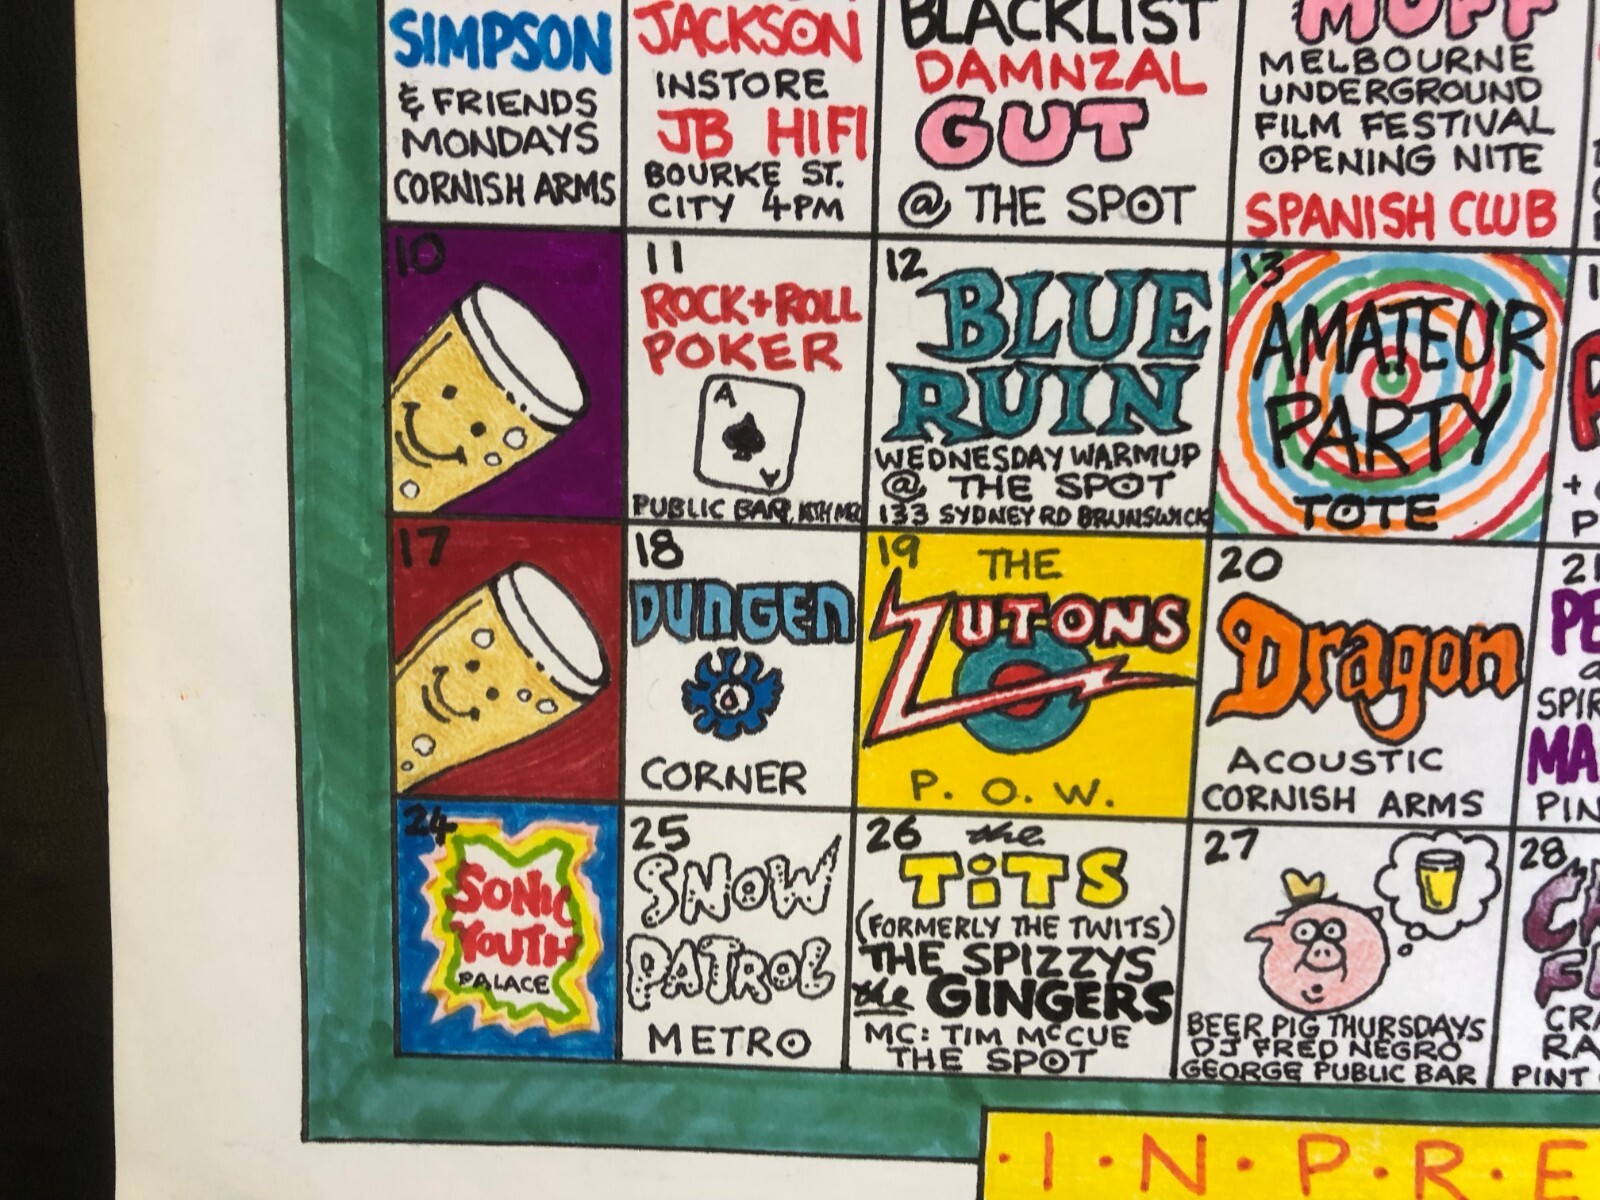 SIMPSON
& FRIENDS
MONDAYS
CORNISH ARMS
JACKSON
INSTORE
JB HIFI
BOURKE ST.
CITY 4PM
BLACKLIST
DAMNZAL
GUT
@ THE SPOT
MUFF
MELBOURNE
UNDERGROUND
FILM FESTIVAL
OPENING NITE
SPANISH CLUB
10
11
ROCK+ROLL
POKER
A
A
PUBLIC BAR,
12
BLUE
RUIN
WEDNESDAY WARMUP
@ THE SPOT
133 SYDNEY RD BRUNSWICK
13
AMATEUR
PARTY
TOTE
17
18
DUNGEN
CORNER
19
THE
ZUTONS
P. O. W.
20
Dragon
ACOUSTIC
CORNISH ARMS
21
PE
SPIR
MA
PIN
24
SONIC
YOUTH
PALACE
25
SNOW
PATROL
METRO
26
the
TiTS
(FORMERLY THE TWITS)
THE SPIZZYS
the GINGERS
MC: TIM McCUE
THE SPOT
27
BEER PIG THURSDAYS
DJ FRED NEGRO
GEORGE PUBLIC BAR
28
CRA
RA
PINT
·I·N·P·R·E